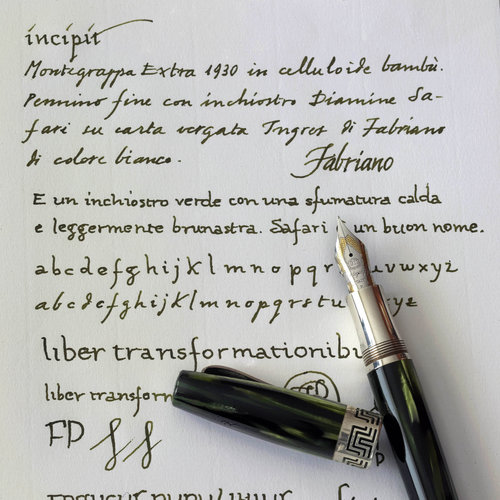 incipit
Montegrappa Extra 1930 in celluloide bambù.
Pennino fine con inchiostro Diamine Sa-
fari su carta vergata Ingres di Fabriano
di colore bianco.
Fabriano
E un inchiostro verde con una sfumatura calda
e leggermente brunastra. Safari un buon nome.
a b c d e f g h i j k l m n o p q r u v w x y z
a b c d e f g h i j k l m n o p q r s t u y z
liber transformationibu
liber transform
FP